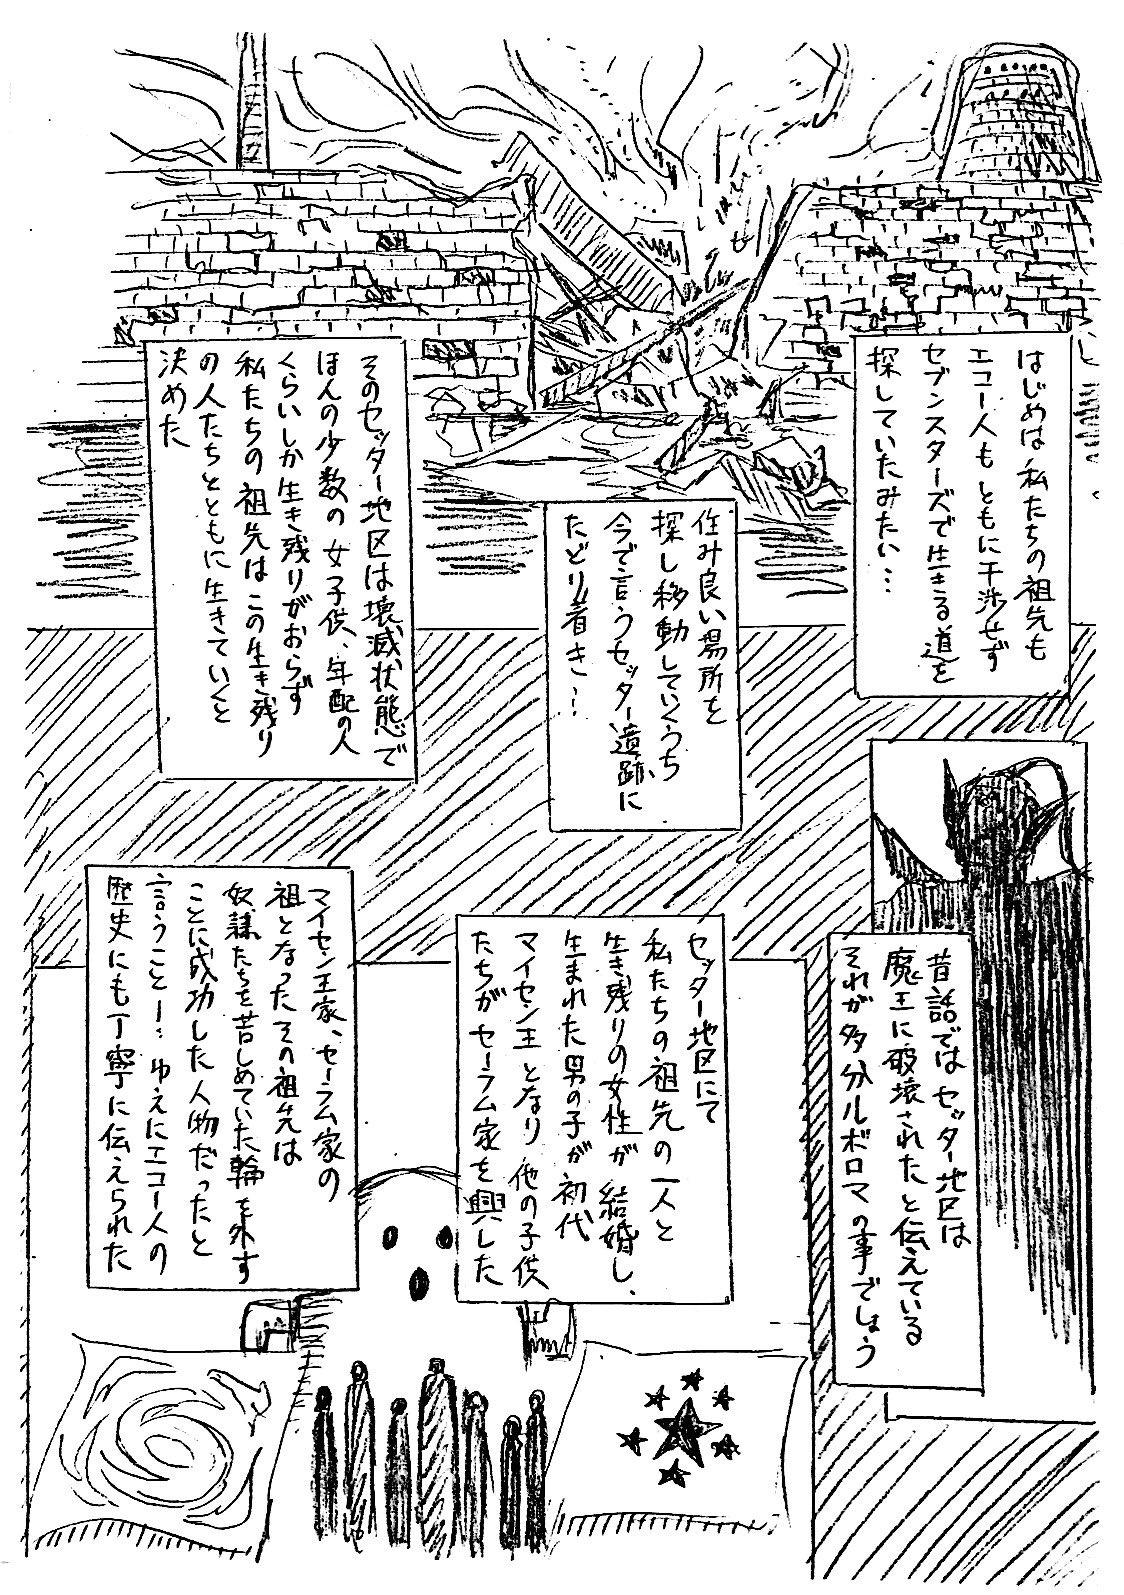 はじめは私たちの祖先も
エコー人もともに干渉せず
セブンスターズで生きる道を
探していたみたい…
住み良い場所を
探し移動していくうち
今で言うセッター遺跡に
たどり着き…
そのセッター地区は壊滅状態で
ほんの少数の女子供、年配の人
くらいしか生き残りがおらず
私たちの祖先はこの生き残り
の人たちとともに生きていくと
決めた
昔話ではセッター地区は
魔王に破壊されたと伝えている
それが多分ルボロマの事でしょう
セッター地区にて
私たちの祖先の一人と
生き残りの女性が結婚し、
生まれた男の子が初代
マイセン王となり他の子供
たちがセーラム家を興した
マイセン王家、セーラム家の
祖となったその祖先は
奴隷たちを苦しめていた輪を外す
ことに成功した人物だったと
言うこと…ゆえにエコー人の
歴史にも丁寧に伝えられた